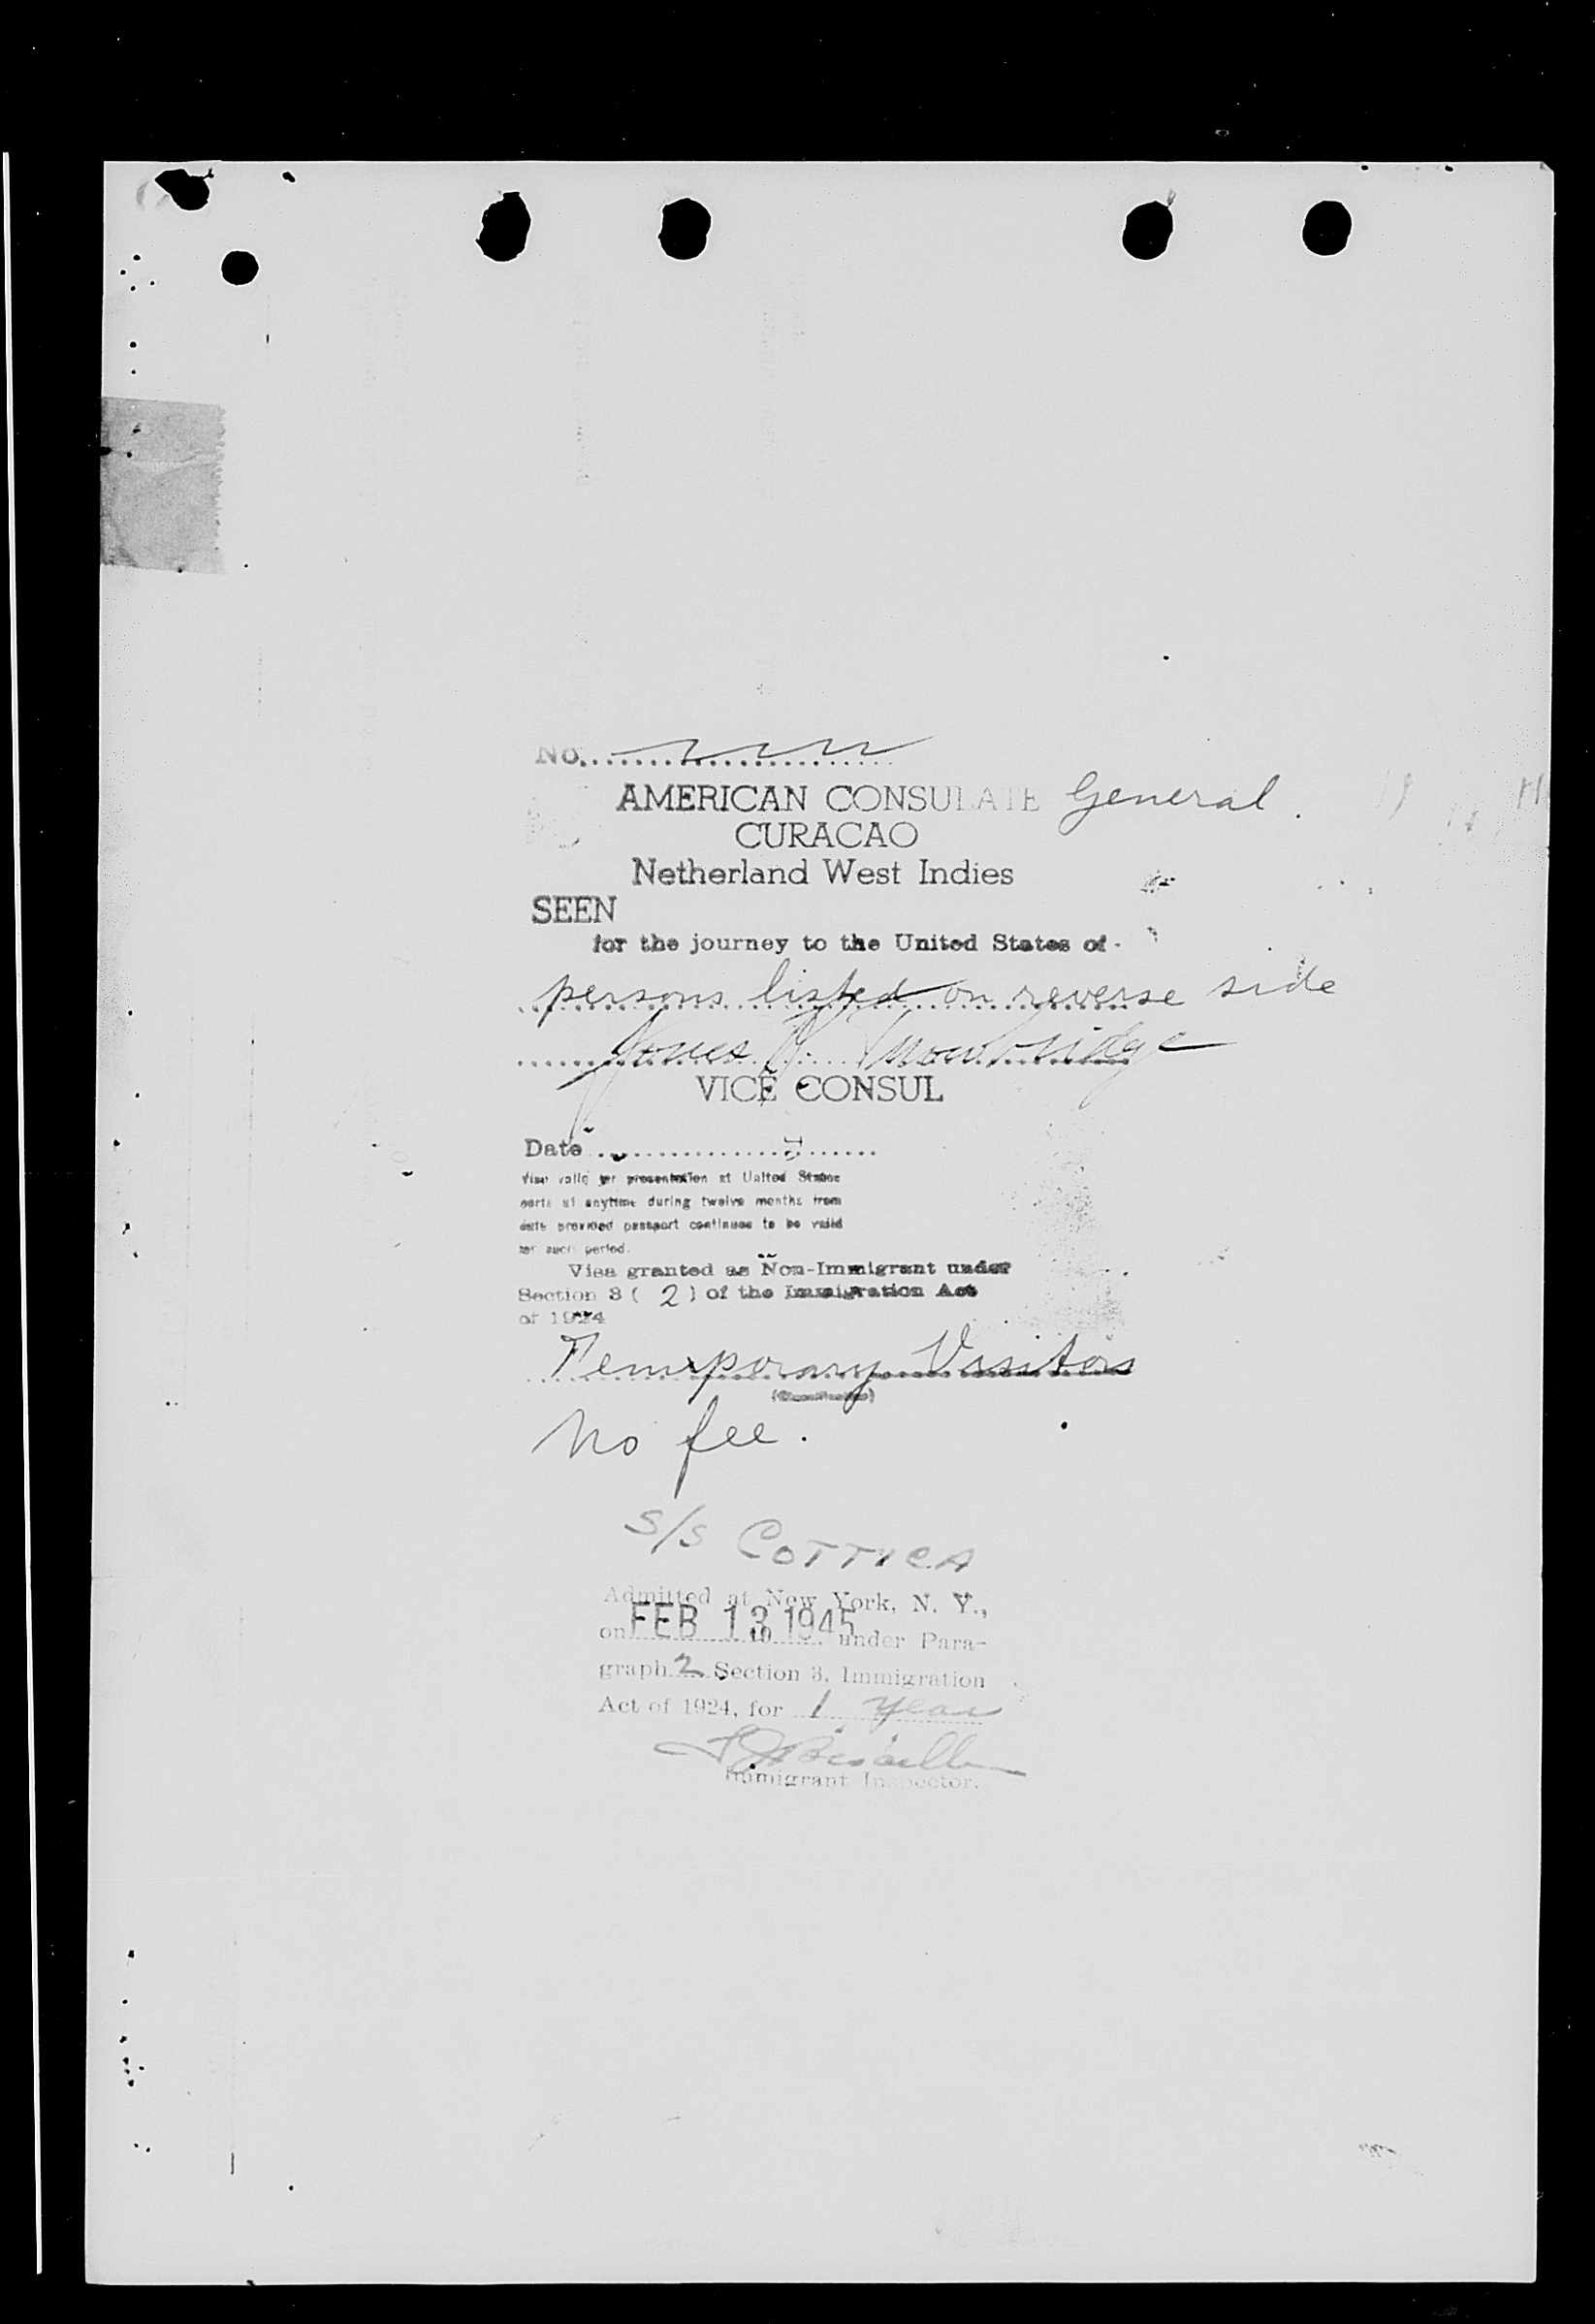 No.
AMERICAN CONSULATE General.
CURACAO
Netherland West Indies
SEEN
for the journey to the United States of
persons listed on reverse side
VICE CONSUL
Date
Visa valid for presentation at United States
ports at anytime during twelve months from
date provided passport continues to be valid
for such period.
Visa granted as Non-Immigrant under
Section 3 ( 2 ) of the Immigration Act
of 1924
Temporary Visitors
(Classification)
No fee.
S/S COTTICA
Admitted at New York, N. Y.,
on FEB 13 1945 19 under Para-
graph 2 Section 3, Immigration
Act of 1924, for 1 year
Immigrant Inspector.